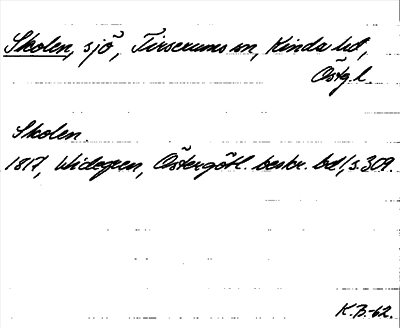 Skolen, sjö, Tirserums sn, Kinda hd,
Östgl.
Skolen.
1817, Widegren, Östergötl. beskr. bd 1, s. 309.
K.B-62.